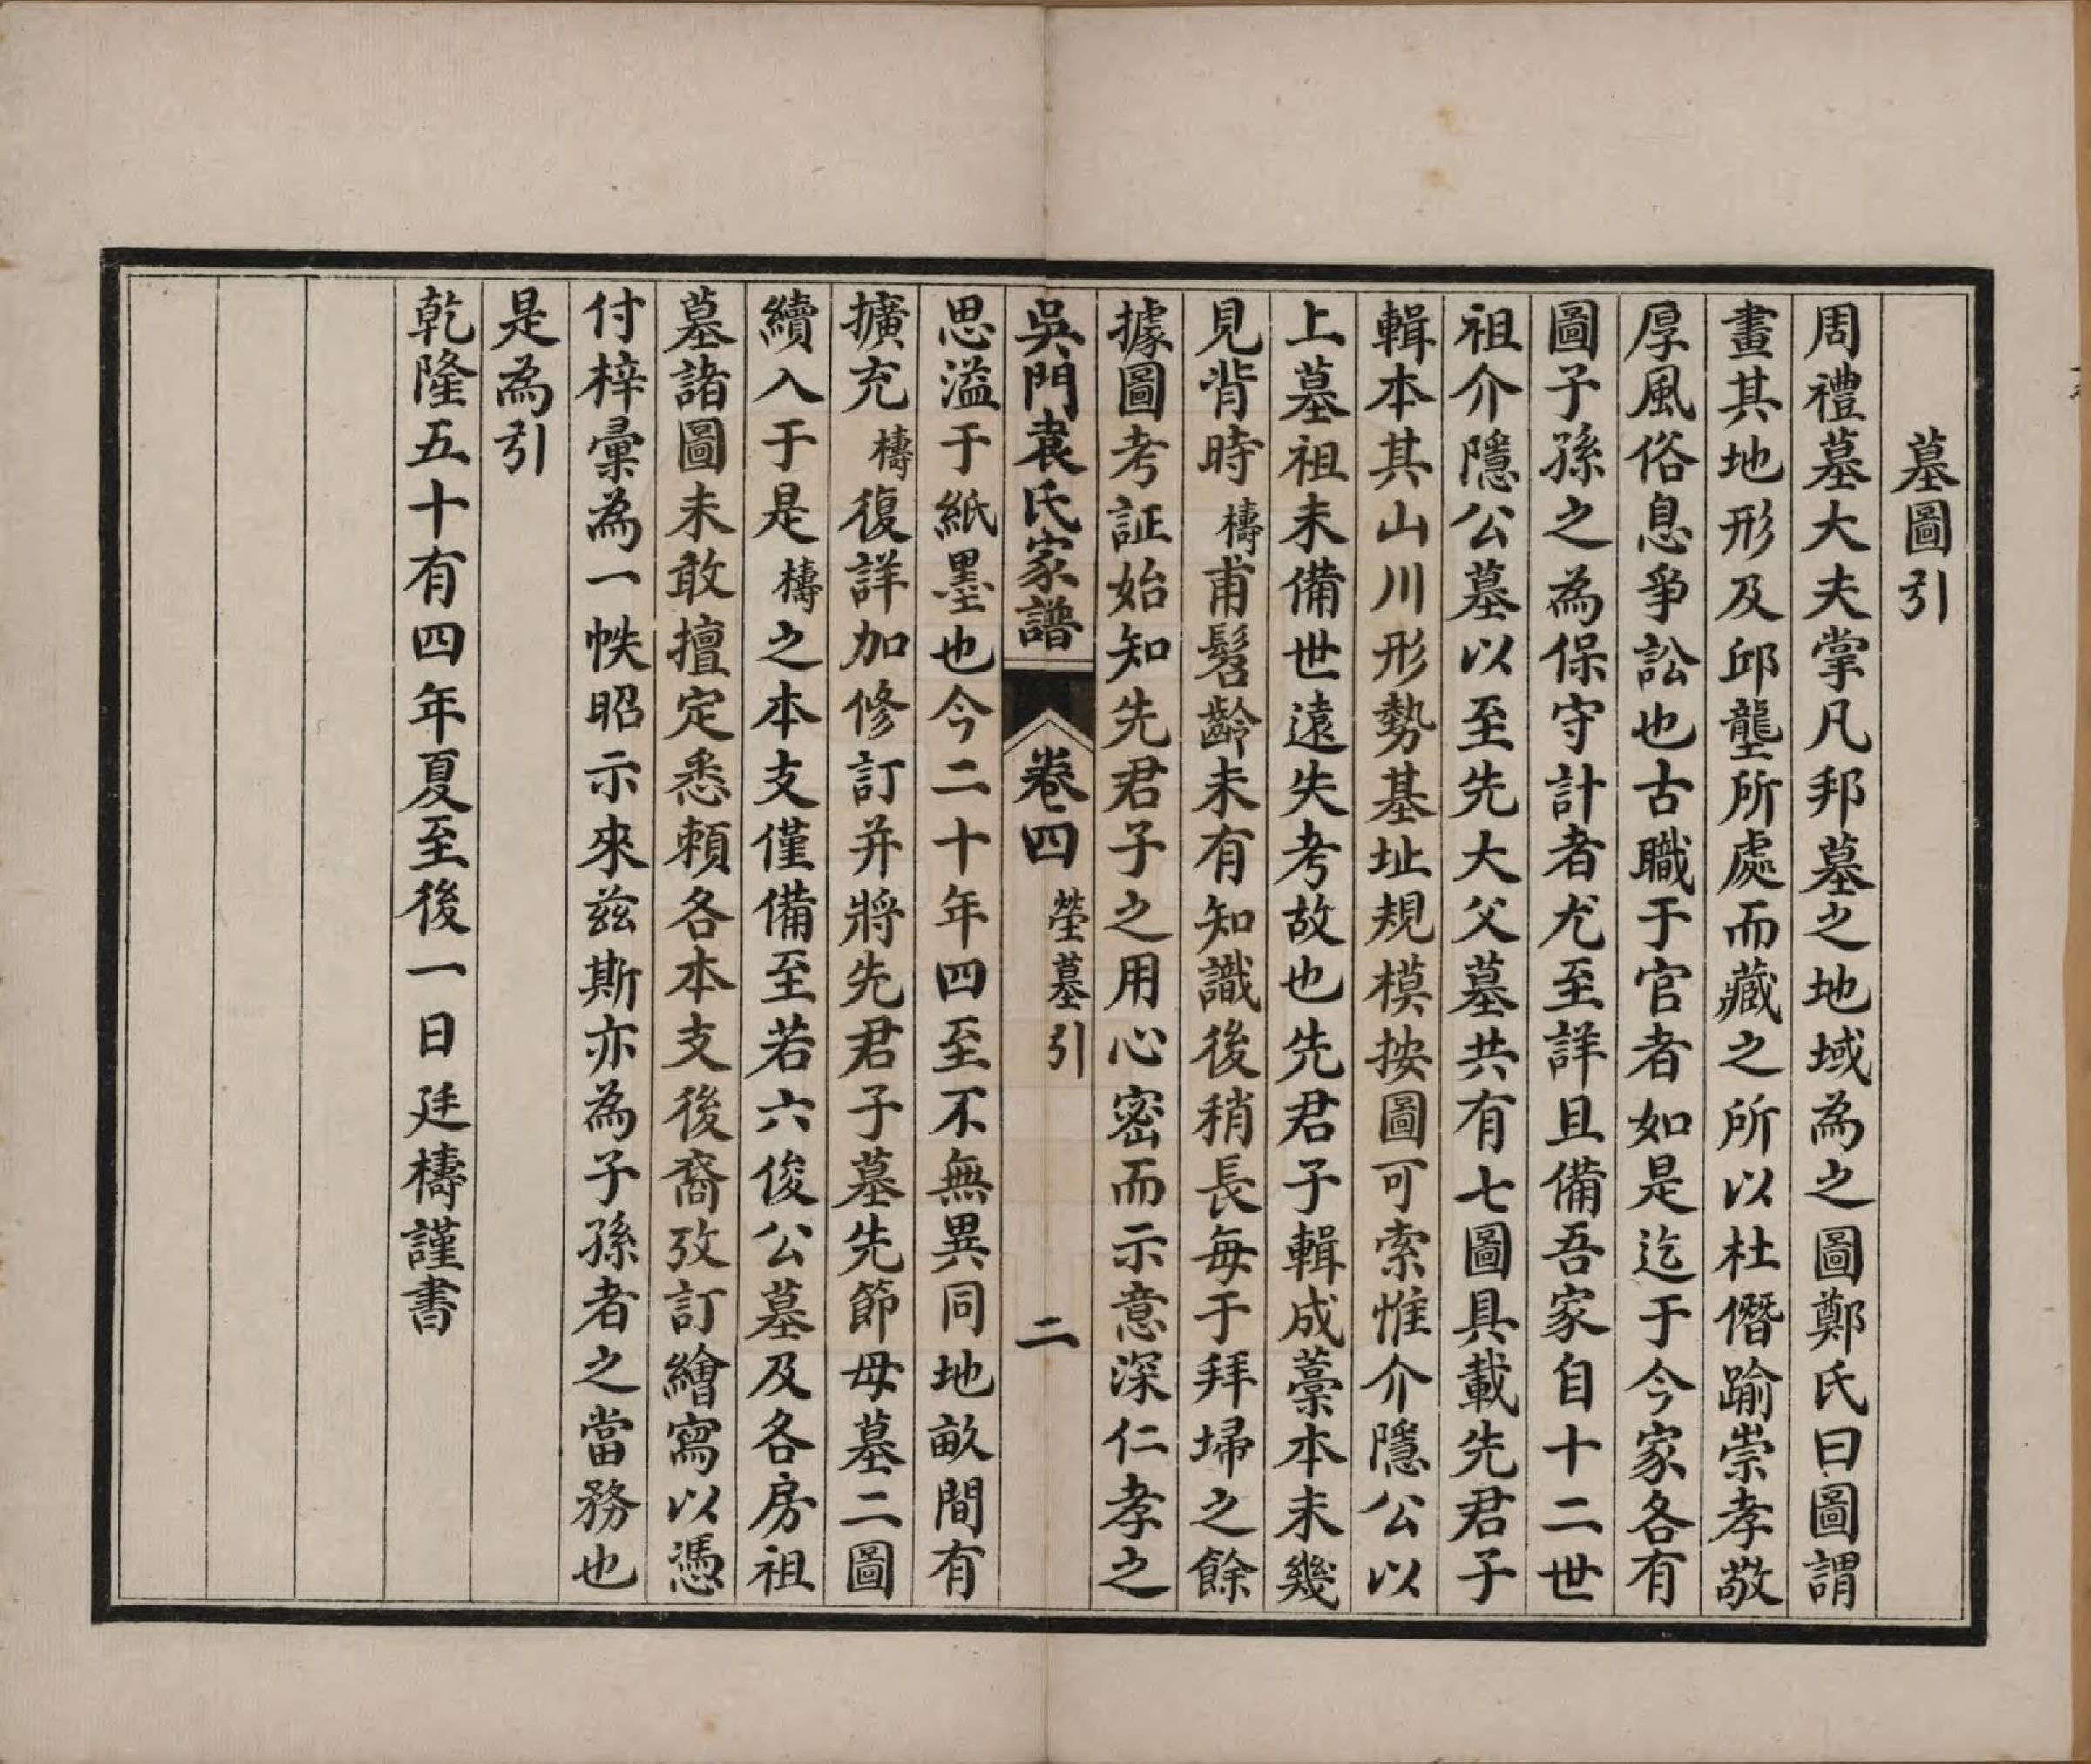 墓圖引
周禮墓大夫掌凡邦墓之地域為之圖鄭氏曰圖謂
畫其地形及邱壟所處而藏之所以杜僭踰崇孝敬
厚風俗息爭訟也古職于官者如是迄于今家各有
圖子孫之為保守計者尤至詳且備吾家自十二世
祖介隱公墓以至先大父墓共有七圖具載先君子
輯本其山川形勢基址規模按圖可索惟介隱公以
上墓祖未備世遠失考故也先君子輯成藁本未幾
見背時檮甫髫齡未有知識後稍長每于拜埽之餘
據圖考証始知先君子之用心密而示意深仁孝之
吳門袁氏家譜 卷四 塋墓引 二
思溢于紙墨也今二十年四至不無異同地畝間有
擴充檮復詳加修訂并將先君子墓先節母墓二圖
續入于是檮之本支僅備至若六俊公墓及各房祖
墓諸圖未敢擅定悉賴各本支後裔攷訂繪寫以憑
付梓彙為一帙昭示來茲斯亦為子孫者之當務也
是為引
乾隆五十有四年夏至後一日廷檮謹書